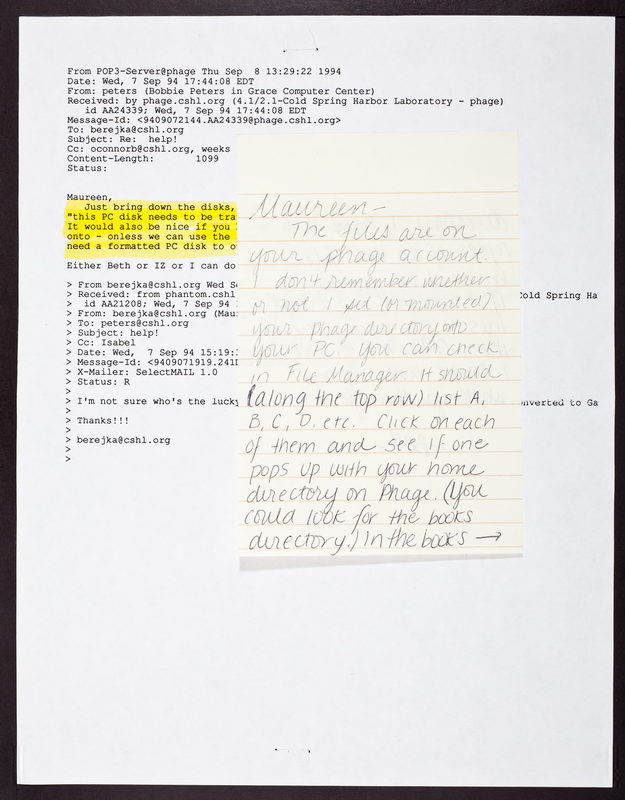 From POP3-Server@phage Thu Sep  8 13:29:22 1994
Date: Wed, 7 Sep 94 17:44:08 EDT
From: peters (Bobbie Peters in Grace Computer Center)
Received: by phage.cshl.org (4.1/2.1-Cold Spring Harbor Laboratory - phage)
id AA24339; Wed, 7 Sep 94 17:44:08 EDT
Message-Id: <9409072144.AA24339@phage.cshl.org>
To: berejka@cshl.org
Subject: Re:  help!
Cc: oconnorb@cshl.org, weeks
Content-Length:       1099
Status:
Maureen,
Just bring down the disks,
"this PC disk needs to be tra
It would also be nice if you
onto - onless we can use the
need a formatted PC disk to
Either Beth or IZ or I can do
> From berejka@cshl.org Wed
> Received: from phantom.cshl
Cold Spring Ha
>  id AA21208; Wed, 7 Sep 94
> From: berejka@cshl.org (Mau
> To: peters@cshl.org
> Subject: help!
> Cc: Isabel
> Date: Wed,  7 Sep 94 15:19:
> Message-Id: <9409071919.241
> X-Mailer: SelectMAIL 1.0
> Status: R
>
> I'm not sure who's the lucky
nverted to Ga
>
> Thanks!!!
>
> berejka@cshl.org
>
>
Maureen-
The files are on
your phage account.
I don't remember whether
or not I set (or mounted)
your phage directory onto
your PC. You can check
in File Manager. It should
(along the top row) list A,
B, C, D, etc. Click on each
of them and see if one
pops up with your home
directory on Phage. (You
could look for the books
directory.) In the books →